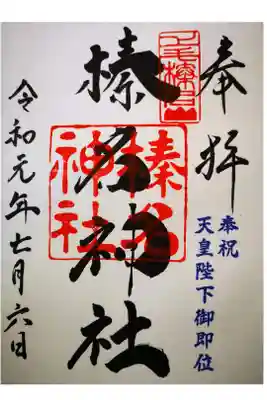 奉拝
奉祝
天皇陛下御即位
上毛榛名山
榛名神社
榛名神社
令和元年七月六日